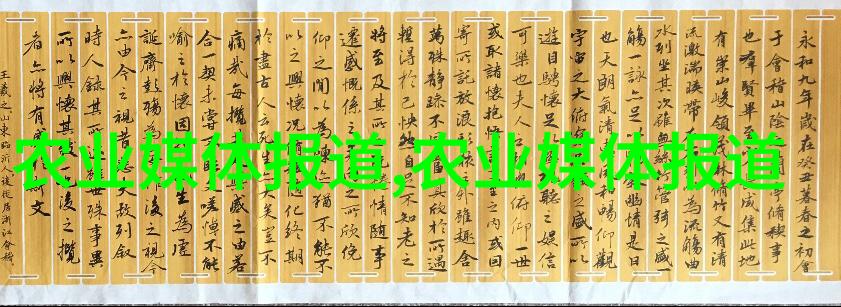 农业媒体报道,农业媒体报道
永和九年歲在癸丑暮春之初會
于會稽山陰亭脩稧事
也群賢畢至咸集此地
有崇山峻領茂林脩竹又有清
流激湍暎帶為流觴曲
水列坐其次雖無絲竹管弦之盛一
觴一詠亦足幽情是日
也天朗氣清和暢仰觀
宇宙之大俯所以
遊目騁懷足聽之娛信
可樂也夫人俯仰一世
或取諸懷抱悟言之內或因
寄所託放浪之外雖趣舍
萬殊靜躁不當其欣於所遇
暫得於己快然自足不知老之
將至及其所情隨事
遷感慨係之所欣俛
仰之間以為陳猶不能不
以之興懷況化終期
於盡古人云死生大矣豈不
痛哉每攬興感之由若
合一契未嘗嗟悼不能
喻之於懷固生為虛
誕齊彭殤為後之視今
亦由今之視昔悲夫故列敘
時人錄其所世殊事異
所以興懷其致後之攬
者亦將有感斯文
王羲之山東臨沂人後徙居浙江會稽